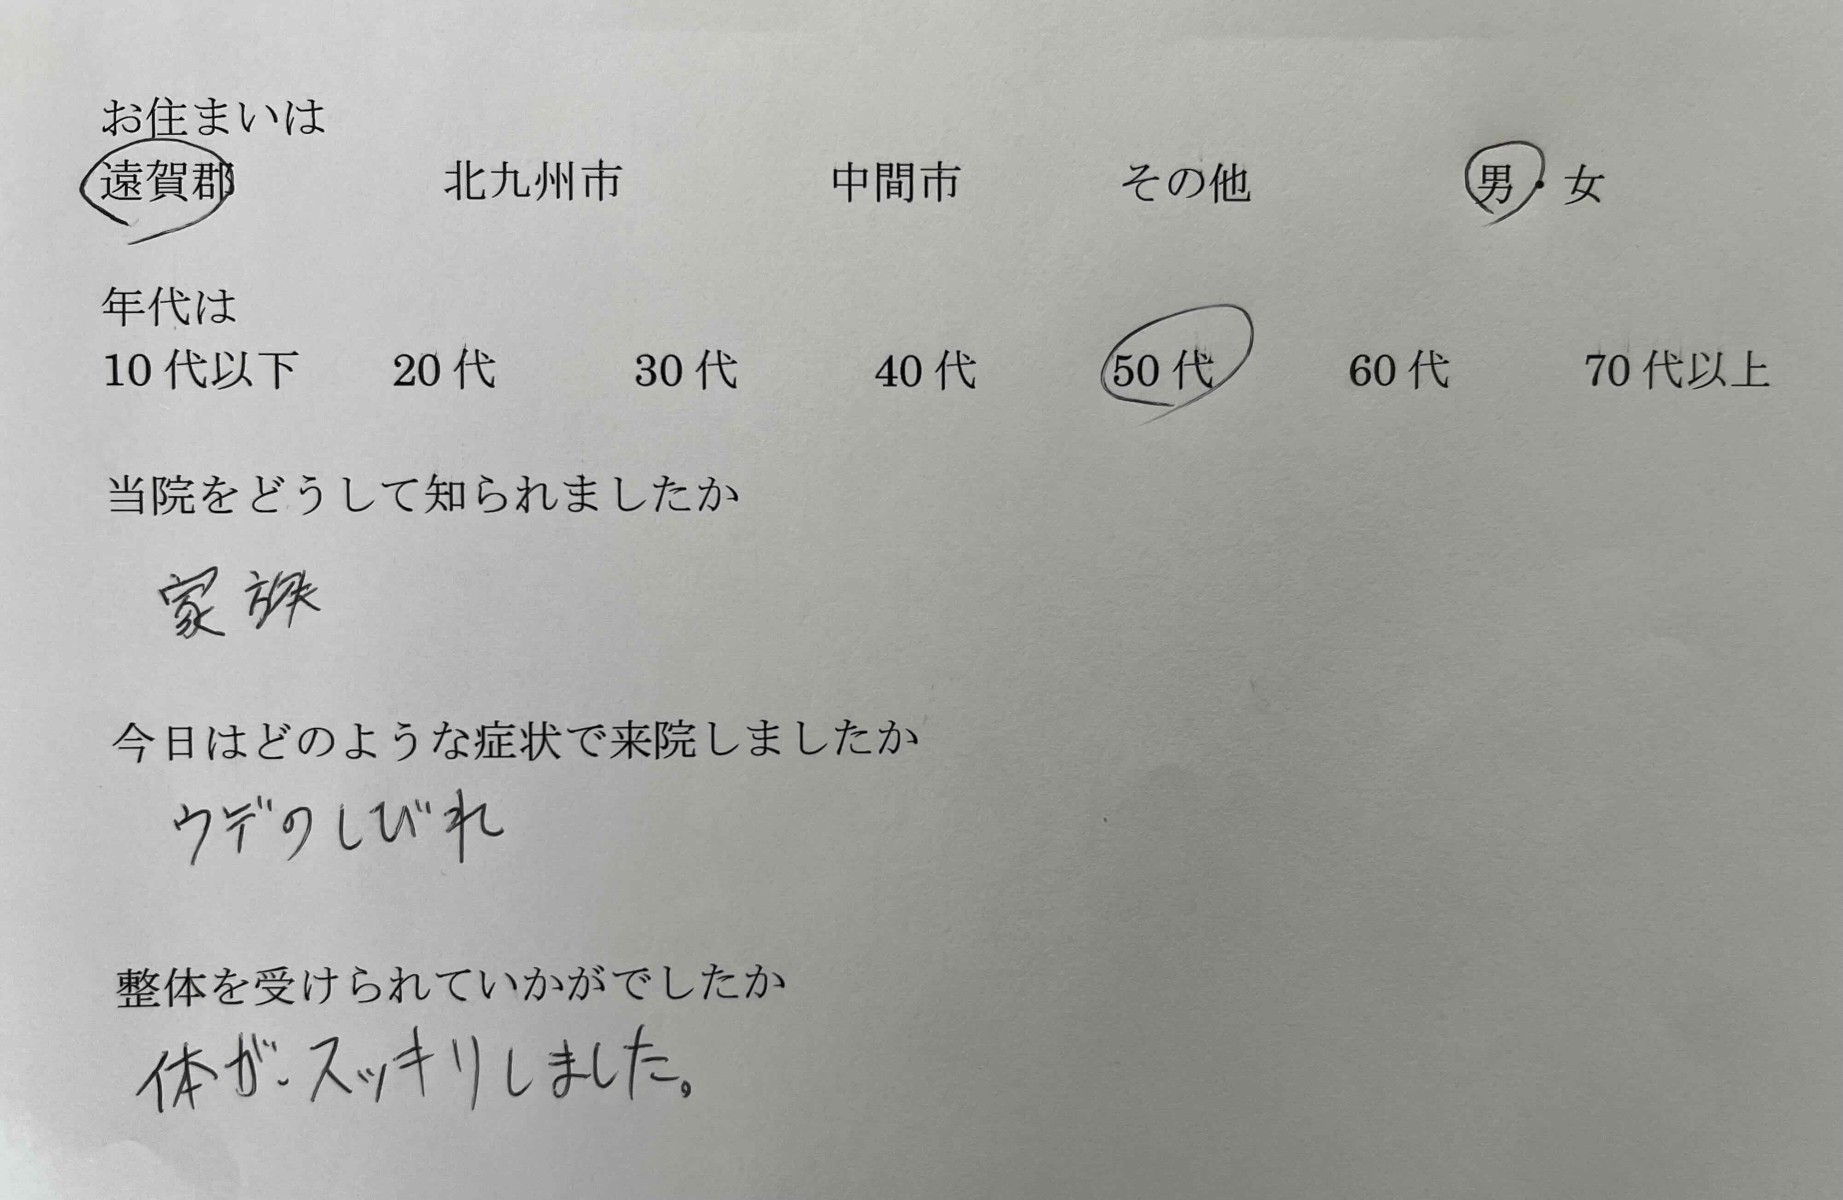 お住まいは
遠賀郡 北九州市 中間市 その他 男・女
年代は
10代以下 20代 30代 40代 50代 60代 70代以上
当院をどうして知られましたか
家族
今日はどのような症状で来院しましたか
ウデのしびれ
整体を受けられていかがでしたか
体が、スッキリしました。